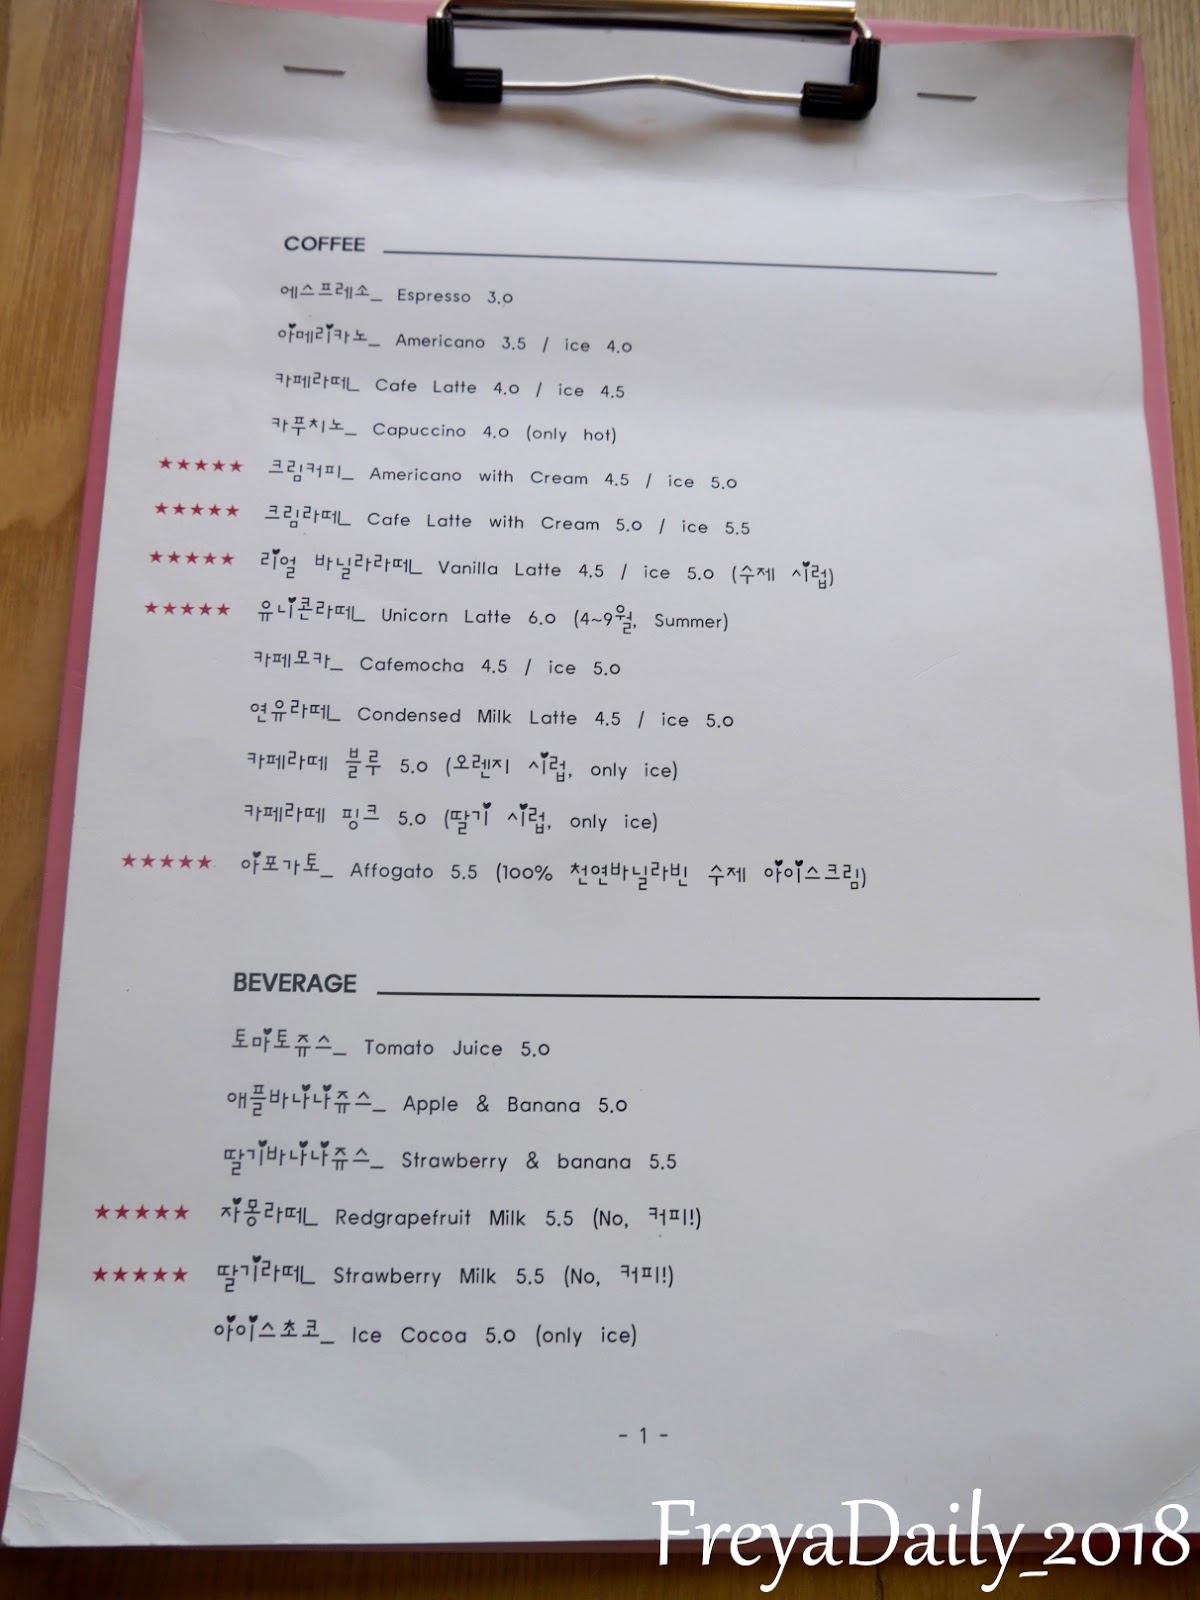 COFFEE
에스프레소_ Espresso 3.0
아메리카노_ Americano 3.5 / ice 4.0
카페라떼_ Cafe Latte 4.0 / ice 4.5
카푸치노_ Capuccino 4.0 (only hot)
★★★★★ 크림커피_ Americano with Cream 4.5 / ice 5.0
★★★★★ 크림라떼_ Cafe Latte with Cream 5.0 / ice 5.5
★★★★★ 리얼 바닐라라떼_ Vanilla Latte 4.5 / ice 5.0 (수제 시럽)
★★★★★ 유니콘라떼_ Unicorn Latte 6.0 (4~9월, Summer)
카페모카_ Cafemocha 4.5 / ice 5.0
연유라떼_ Condensed Milk Latte 4.5 / ice 5.0
카페라떼 블루 5.0 (오렌지 시럽, only ice)
카페라떼 핑크 5.0 (딸기 시럽, only ice)
★★★★★ 아포가토_ Affogato 5.5 (100% 천연바닐라빈 수제 아이스크림)
BEVERAGE
토마토쥬스_ Tomato Juice 5.0
애플바나나쥬스_ Apple & Banana 5.0
딸기바나나쥬스_ Strawberry & banana 5.5
★★★★★ 자몽라떼_ Redgrapefruit Milk 5.5 (No, 커피!)
★★★★★ 딸기라떼_ Strawberry Milk 5.5 (No, 커피!)
아이스초코_ Ice Cocoa 5.0 (only ice)
- 1 -
FreyaDaily_2018